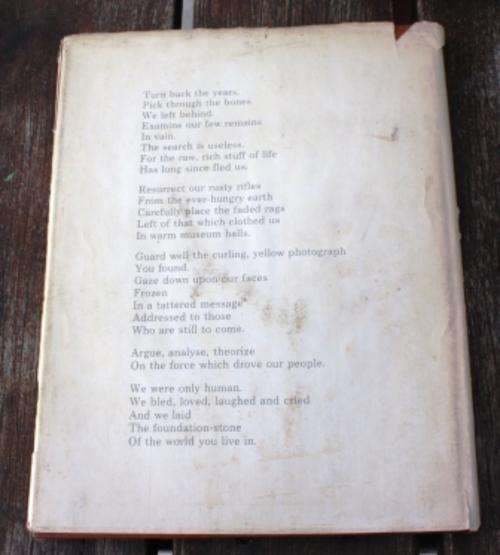 Turn back the years.
Pick through the bones
We left behind.
Examine our few remains
In vain.
The search is useless.
For the raw, rich stuff of life
Has long since fled us.
Resurrect our rusty rifles
From the ever-hungry earth
Carefully place the faded rags
Left of that which clothed us
In warm museum halls.
Guard well the curling, yellow photograph
You found.
Gaze down upon our faces
Frozen
In a tattered message
Addressed to those
Who are still to come.
Argue, analyse, theorize
On the force which drove our people.
We were only human.
We bled, loved, laughed and cried
And we laid
The foundation-stone
Of the world you live in.